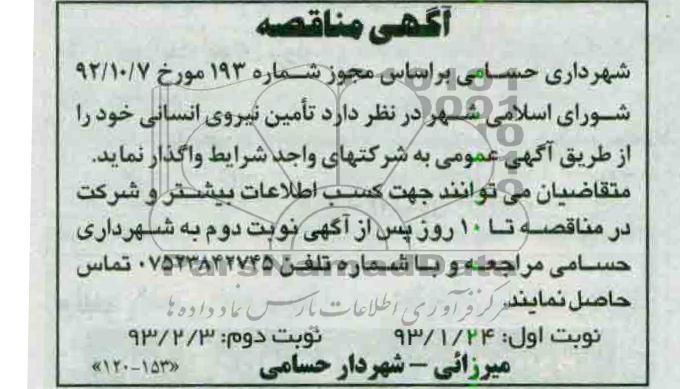 آگهی مناقصه
شهرداری حسامی براساس مجوز شماره ۱۹۳ مورخ ۹۲/۱۰/۷
شورای اسلامی شهر در نظر دارد تأمین نیروی انسانی خود را
از طریق آگهی عمومی به شرکتهای واجد شرایط واگذار نماید.
متقاضیان می توانند جهت کسب اطلاعات بیشتر و شرکت
در مناقصه تا ۱۰ روز پس از آگهی نوبت دوم به شهرداری
حسامی مراجعه و با شماره تلفن ۰۷۵۲۳۸۴۲۷۴۵ تماس
حاصل نمایند
مرکز فرآوری اطلاعات پارس نماد داده ها
نوبت اول: ۹۳/۱/۲۴ نوبت دوم: ۹۳/۲/۳
میرزائی – شهردار حسامی
«۱۲۰-۱۵۳»